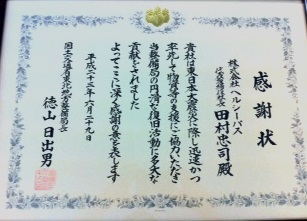 感謝状
株式会社 ヘルシーパス
代表取締役社長
田村忠司 殿
貴社は東日本大震災に際し迅速かつ
率先して物資等の支援にご協力いただき
当整備局の円滑な復旧活動に多大な
貢献をされました
よってここに深く感謝の意を表します
平成二十三年六月二十九日
国土交通省東北地方整備局長
徳山日出男